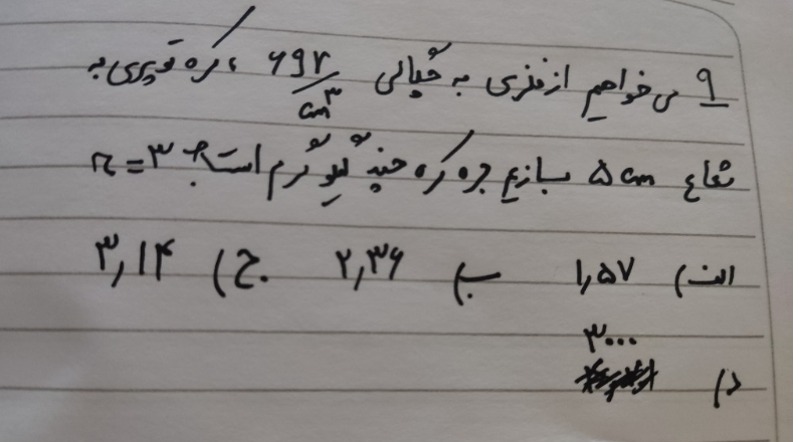 ۹ می‌خواهیم از فلزی به چگالی ۶g۲/cm³، کره توپری به
شعاع ۵ cm بسازیم جرم کره چند کیلوگرم است؟ π=۳
الف) ۱,۵۷ ب) ۲,۳۶ ج) ۳,۱۴
د) ۳۰۰۰